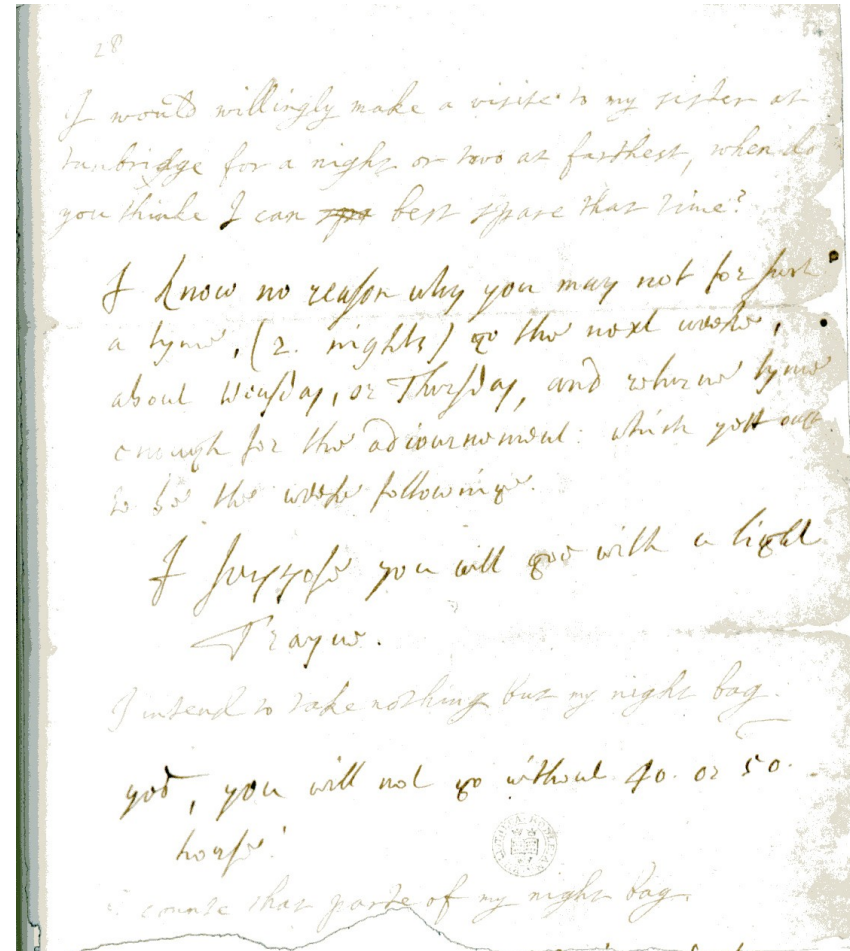 28
I would willingly make a visite to my sister at
tunbridge for a night or two at farthest, when do
you thinke I can best spare that time?
I know no reason why you may not for such
a tyme, (2. nights) go the next weeke,
about Wensday, or Thursday, and returne tyme
enough for the adiournement: which yett ought
to be the weeke followinge.
I suppose you will goe with a light
Trayne.
I intend to take nothing but my night bag.
yes, you will not go without 40. or 50.
horse!
I counte that parte of my night bag.